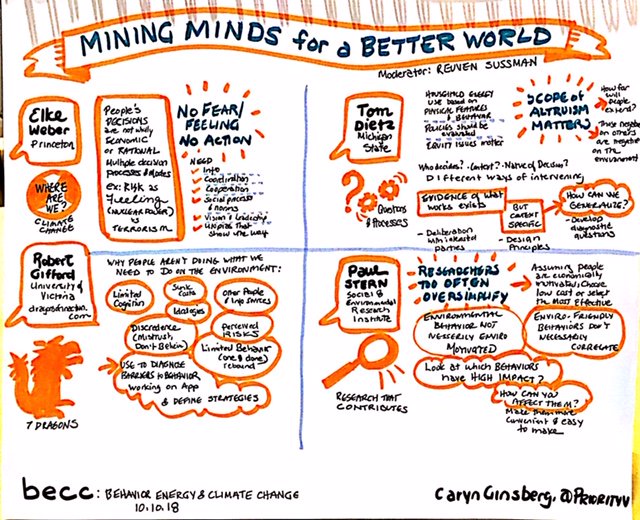 MINING MINDS for a BETTER WORLD
Moderator: REUVEN SUSSMAN
Elke
Weber
Princeton
WHERE
ARE
WE?
CLIMATE
CHANGE
People's
DECISIONS
are not wholly
ECONOMIC
or RATIONAL
Multiple decision
processes & modes
ex: RISK as
Feeling
(NUCLEAR POWER)
vs
TERRORISM
NO FEAR/
FEELING
NO ACTION
NEED
Info
Coordination
Cooperation
Social process
& norms
Vision & Leadership
Utopias that
show the way
Tom
Dietz
Michigan
State
HOUSEHOLD ENERGY
USE based on
PHYSICAL FEATURES
& BEHAVIOR
POLICIES should be
evaluated
EQUITY ISSUES matter
SCOPE of
ALTRUISM
MATTERS
How far
will
people
extend?
Those negative
on others
are
negative
on the
environment
Who decides? • Context? • Nature of Decision?
Different ways of intervening
Questions
& Processes
EVIDENCE of what
works exists
BUT
CONTEXT
SPECIFIC
HOW CAN WE
GENERALIZE?
- Deliberation
with interested
parties
- Design
Principles
- Develop
diagnostic
questions
Robert
Gifford
University of
Victoria
dragonsofinaction.
com
7 DRAGONS
WHY PEOPLE AREN'T DOING WHAT WE
NEED TO DO ON THE ENVIRONMENT:
Limited
Cognition
Sunk
Costs
Ideologies
Other People
& Info Sources
Discredence
(Mistrust,
Don't Believe)
Perceived
RISKS
Limited Behavior
(one & done)
rebound
USE TO DIAGNOSE
BARRIERS to BEHAVIOR
working on App
& DEFINE STRATEGIES
Paul
STERN
Social &
Environmental
Research
Institute
RESEARCH THAT
CONTRIBUTES
RESEARCHERS
TOO OFTEN
OVERSIMPLIFY
Assuming people
are economically
motivated, Choose
low cost or select
the most effective
ENVIRONMENTAL
BEHAVIOR NOT
NESSERILY ENVIRO
MOTIVATED
ENVIRO-FRIENDLY
BEHAVIORS DON'T
NECESSARILY
CORRELATE
Look at which BEHAVIORS
have HIGH IMPACT?
HOW CAN YOU
AFFECT THEM?
Make them more
convenient & easy
to make
becc: BEHAVIOR ENERGY & CLIMATE CHANGE
10.10.18
Caryn Ginsberg, @PRIORITYV